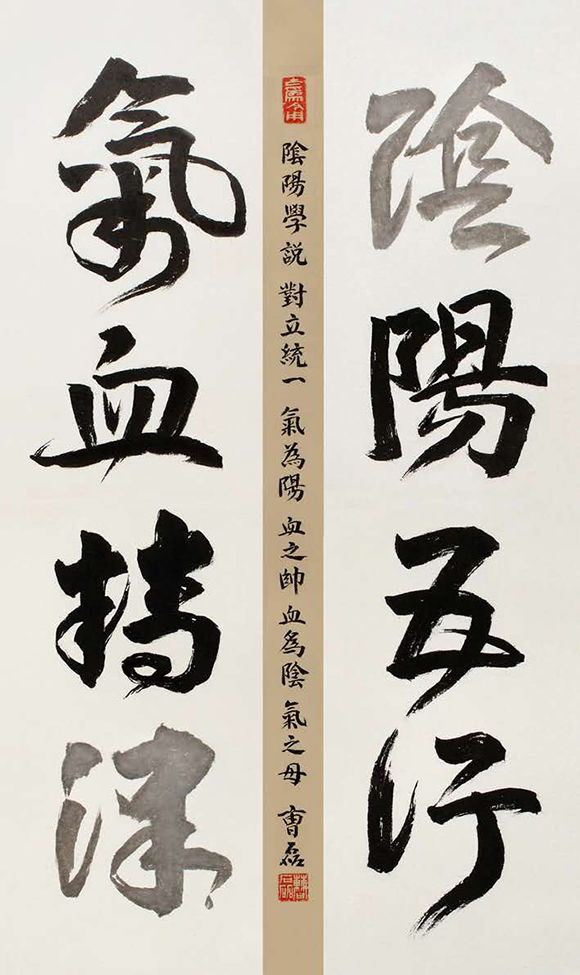 陰陽五行
古為今用
陰陽學説 對立統一 氣為陽 血之帥 血爲陰 氣之母 曹磊
氣血精津